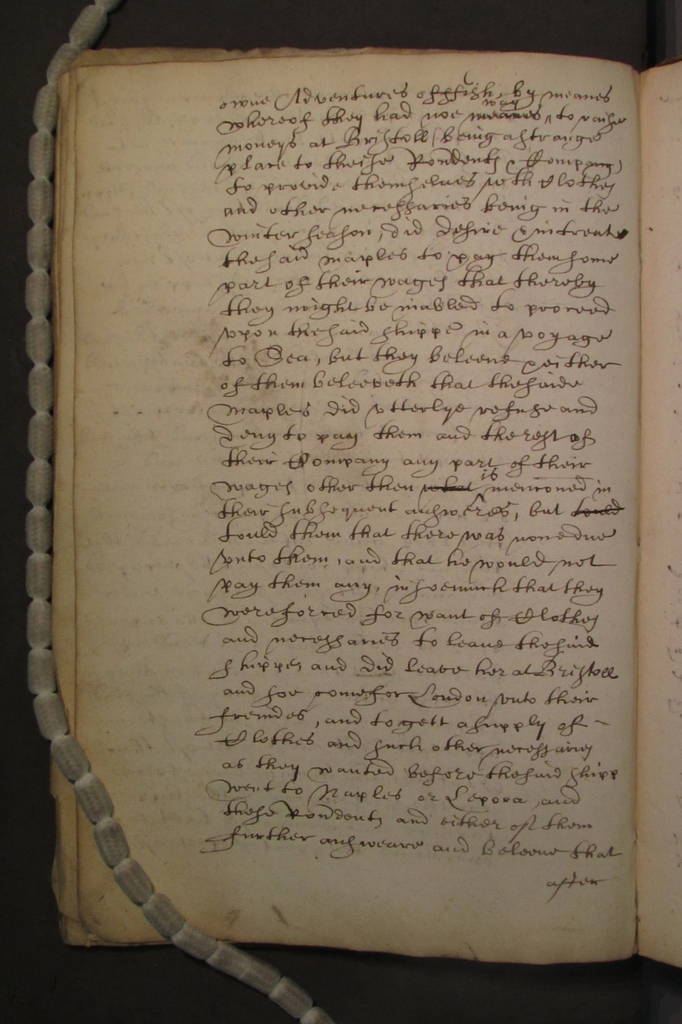 owne Adventures of ffish, by meanes
whereof they had noe way meanes, to raise
moneys at Bristoll (being a strange
place to theise Rondents & Company)
to provide themselves with Clothes
and other necessaries being in the
winter season, did desire & intreate
the said Maples to pay them some
part of their wages that thereby
they might be inabled to proceed
vpon the said shippe in a voyage
to Sea, but they beleeve & either
of them beleeveth that the saide
Maples did vtterlye refuse and
deny to pay them and the rest of
their Company any part of their
wages other then what is mencioned in
their subsequent answeres, but tould
tould them that there was none due
vnto them, and that he would not
pay them any, insoemuch that they
were forced for want of Clothes
and necessaries to leave the said
shippe, and did leave her at Bristoll
and soe come for London vnto their
freindes, and to gett a supply of
Clothes and such other necessaries
as they wanted before the said shipp
went to Naples or Legora, and
these Rondents and either of them
further answeare and beleeve that
after